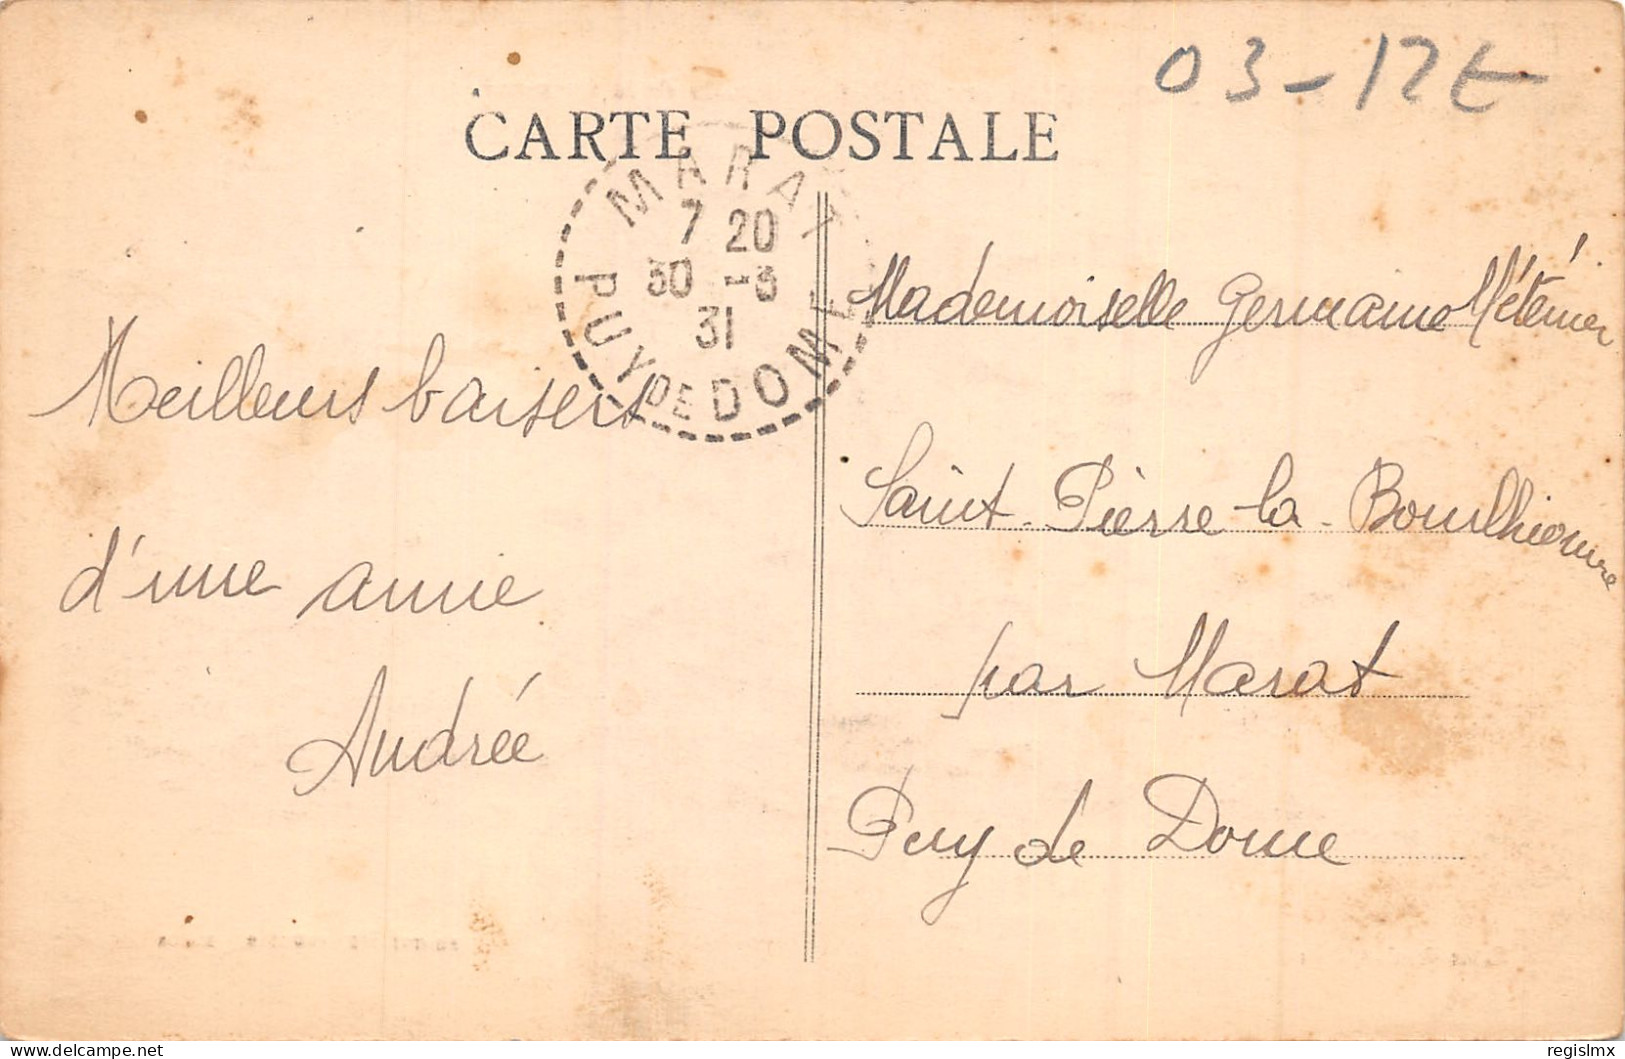 03-12€
CARTE POSTALE
MARAT
7 20
30 -3
31
PUY DE DOME
Meilleurs baisers
d'une amie
Andrée
Mademoiselle Germaine Méténier
Saint-Pierre-la-Bourlhionne
par Marat
Puy de Dome
regislmx